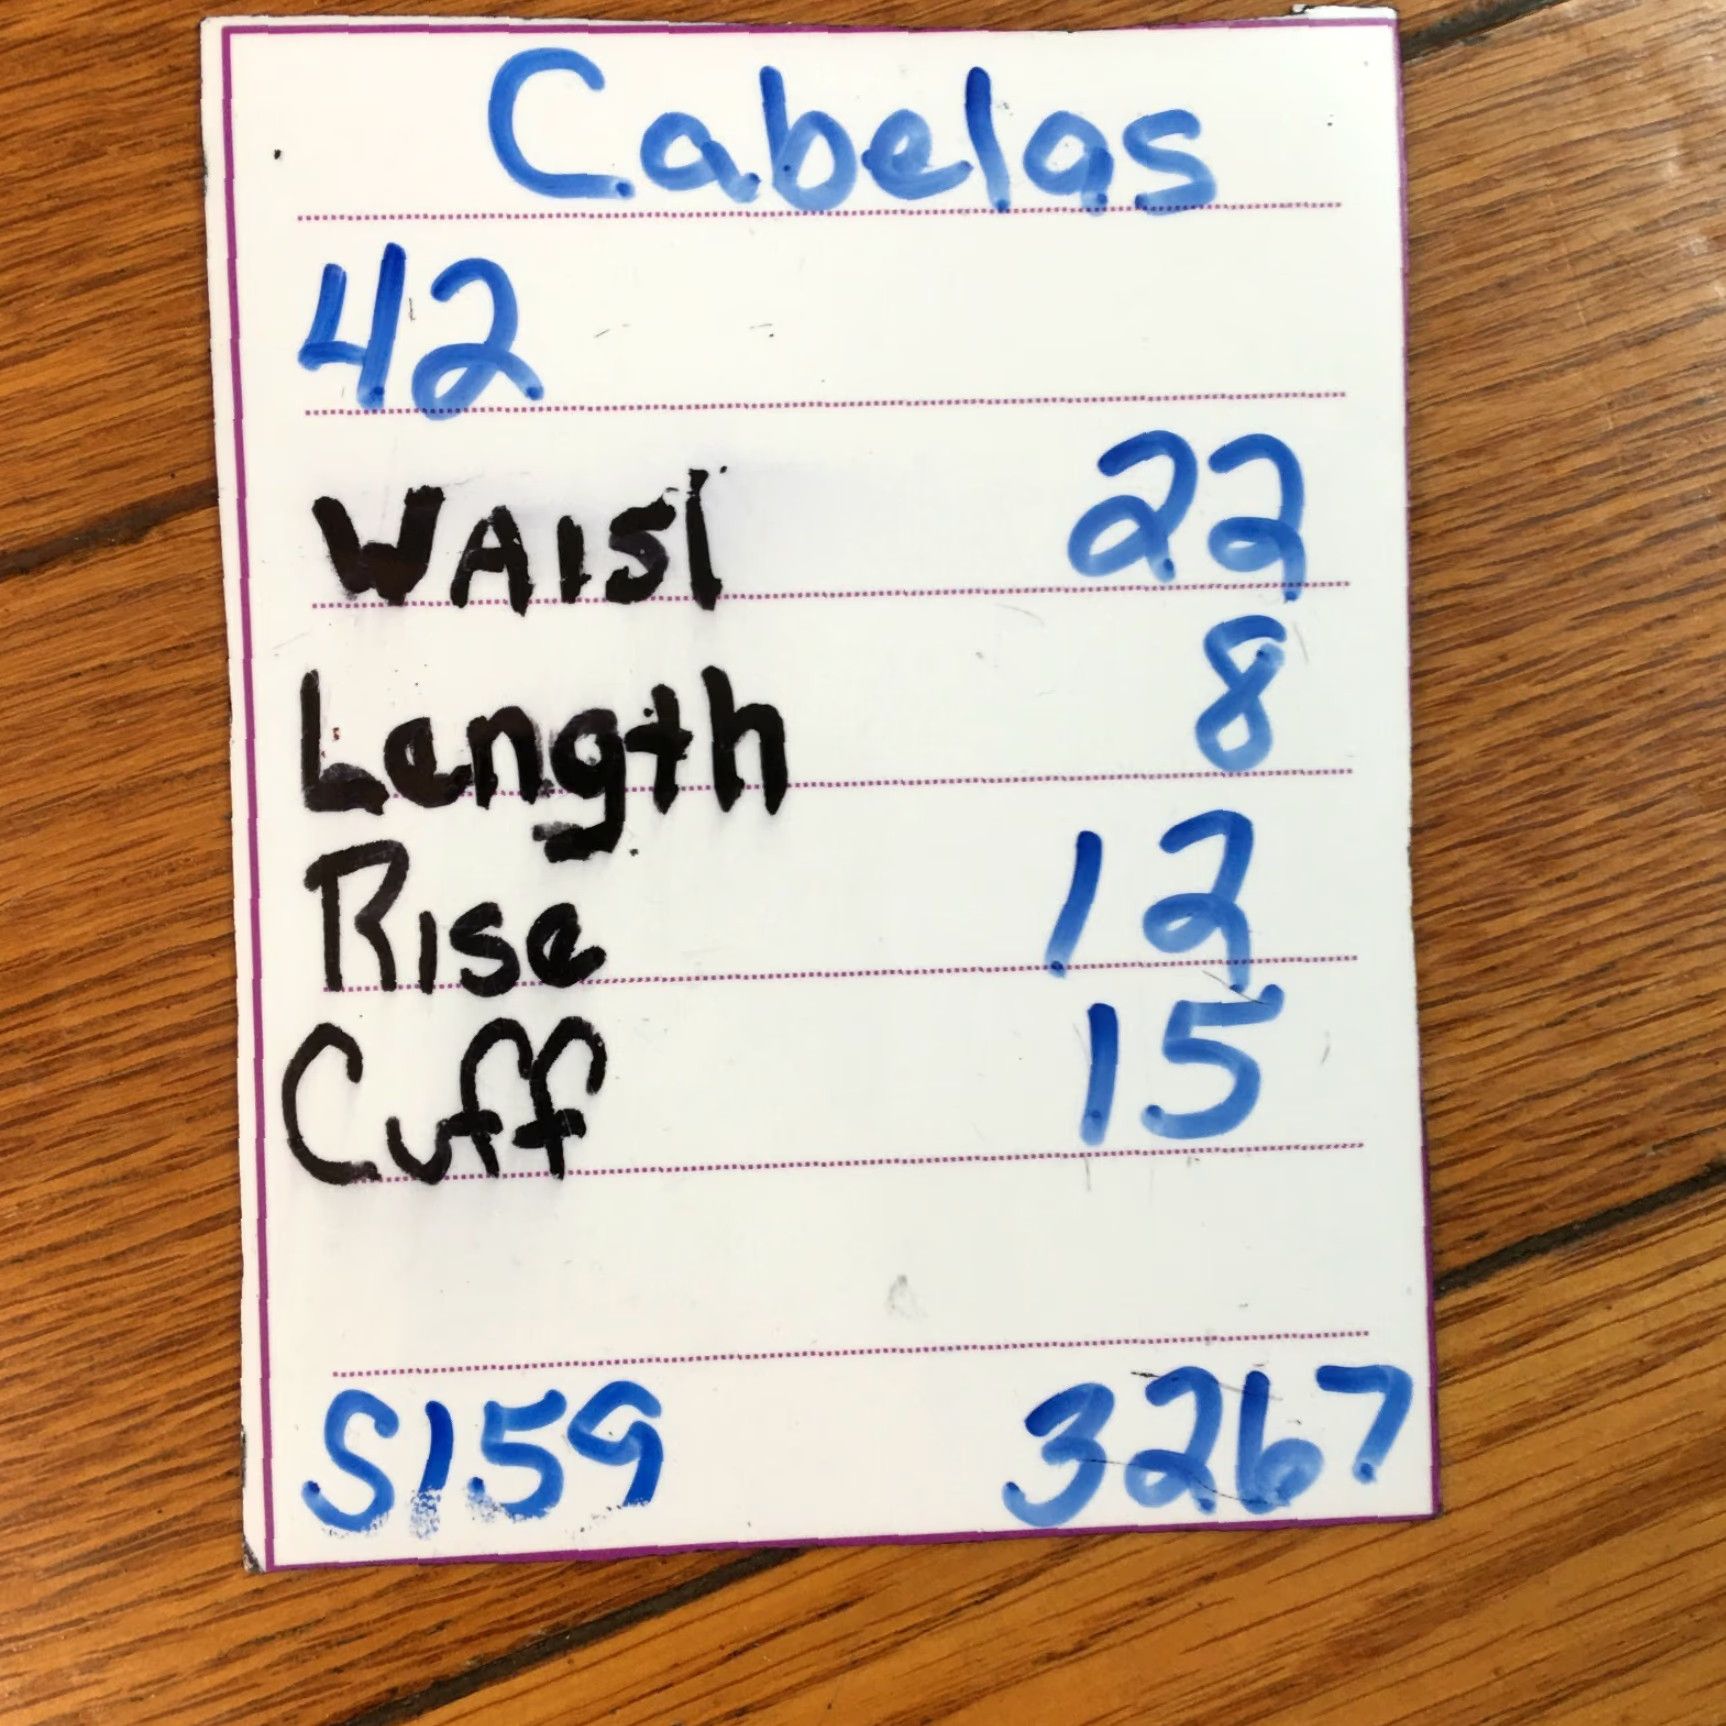 Cabelas
42
WAIST 22
Length 8
Rise 12
Cuff 15
S159 3267